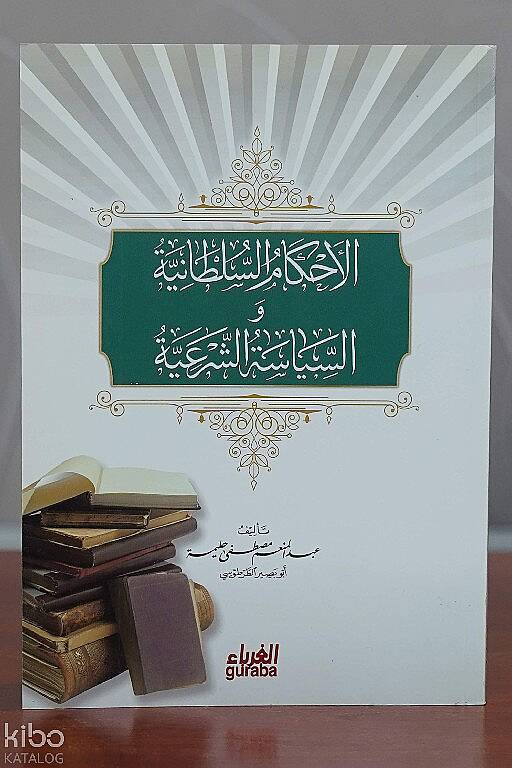 الأَحْكَامُ السُّلْطَانِيَّةُ
وَ
السِّيَاسَةُ الشَّرْعِيَّةُ
تأليف
عبد المنعم مصطفى حليمة
أبو بصير الطرطوسي
الغرباء
guraba
kibo
KATALOG